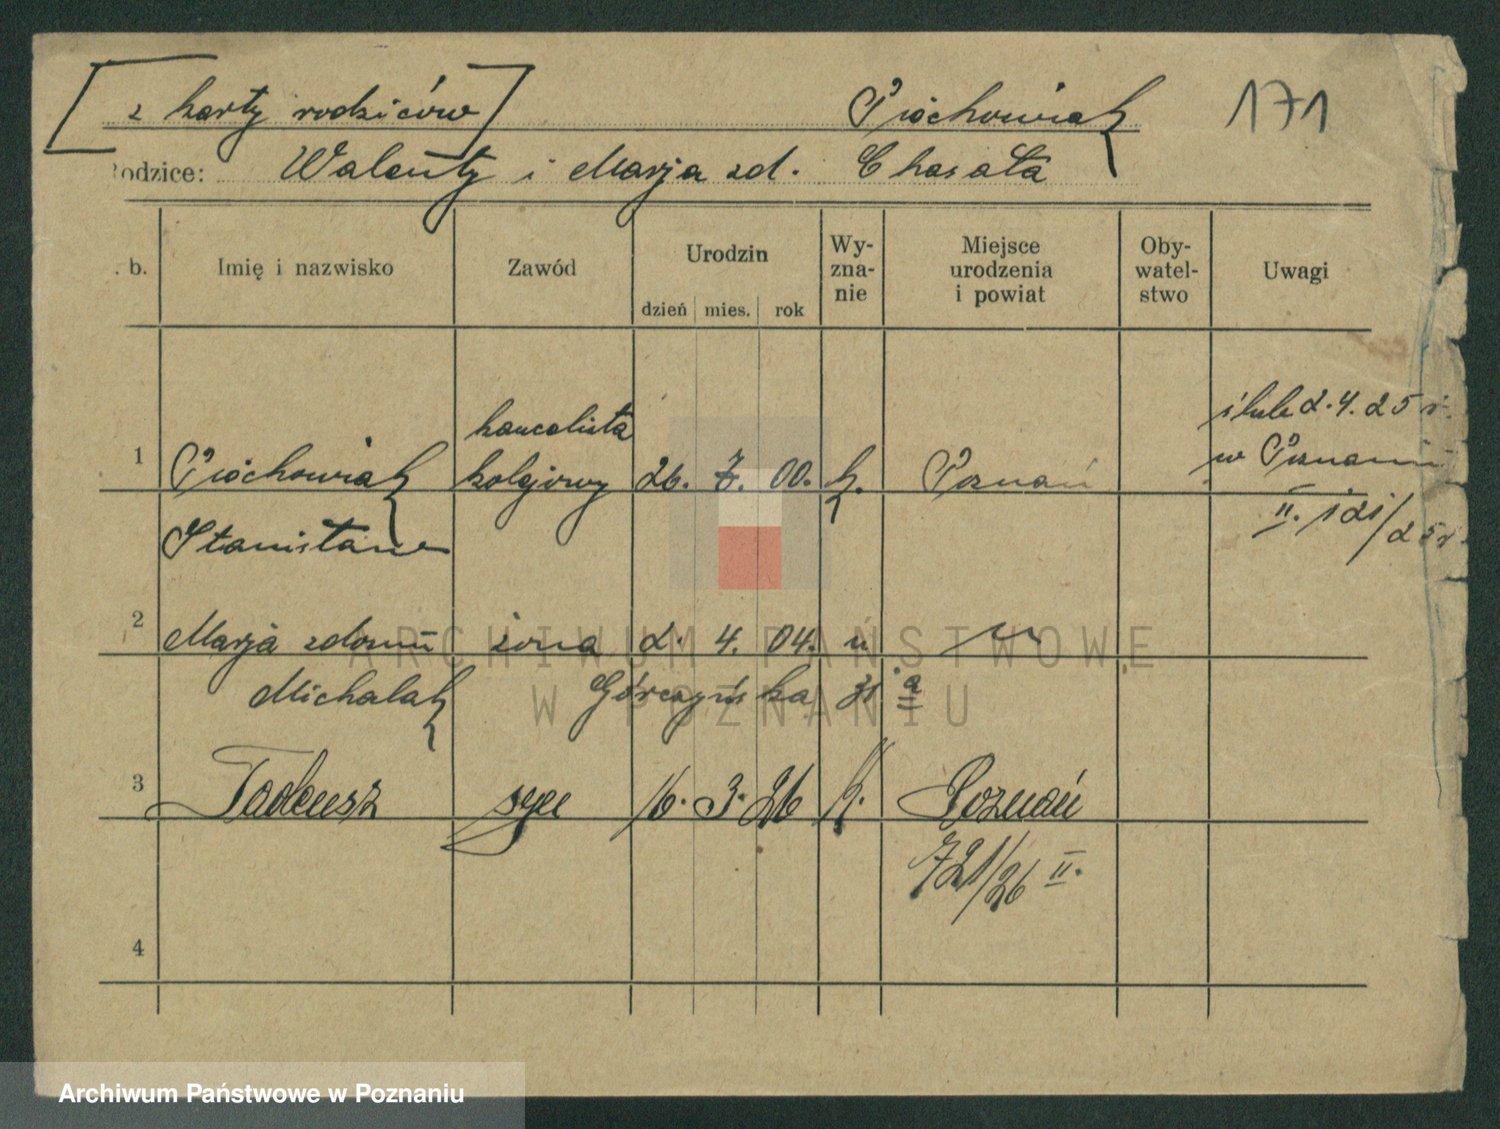 [z karty rodziców] Piochowiak 171
Rodzice: Walenty i Marja zd. Chosała
. b. Imię i nazwisko Zawód Urodzin dzień mies. rok Wy-zna-nie Miejsce urodzenia i powiat Oby-watel-stwo Uwagi
kancelista ślub 2.4.25 r.
1 Piochowiak kolejowy 26. 7. 00. k. Poznań w Poznaniu
Stanisław II. 121/25 r.
2 Marja z domu żona 2. 4. 04. "
Michalak Górczyńska 31 a
3 Tadeusz syn 16. 3. 26 k. Poznań
721/26 II.
4
ARCHIWUM PAŃSTWOWE
W POZNANIU
Archiwum Państwowe w Poznaniu